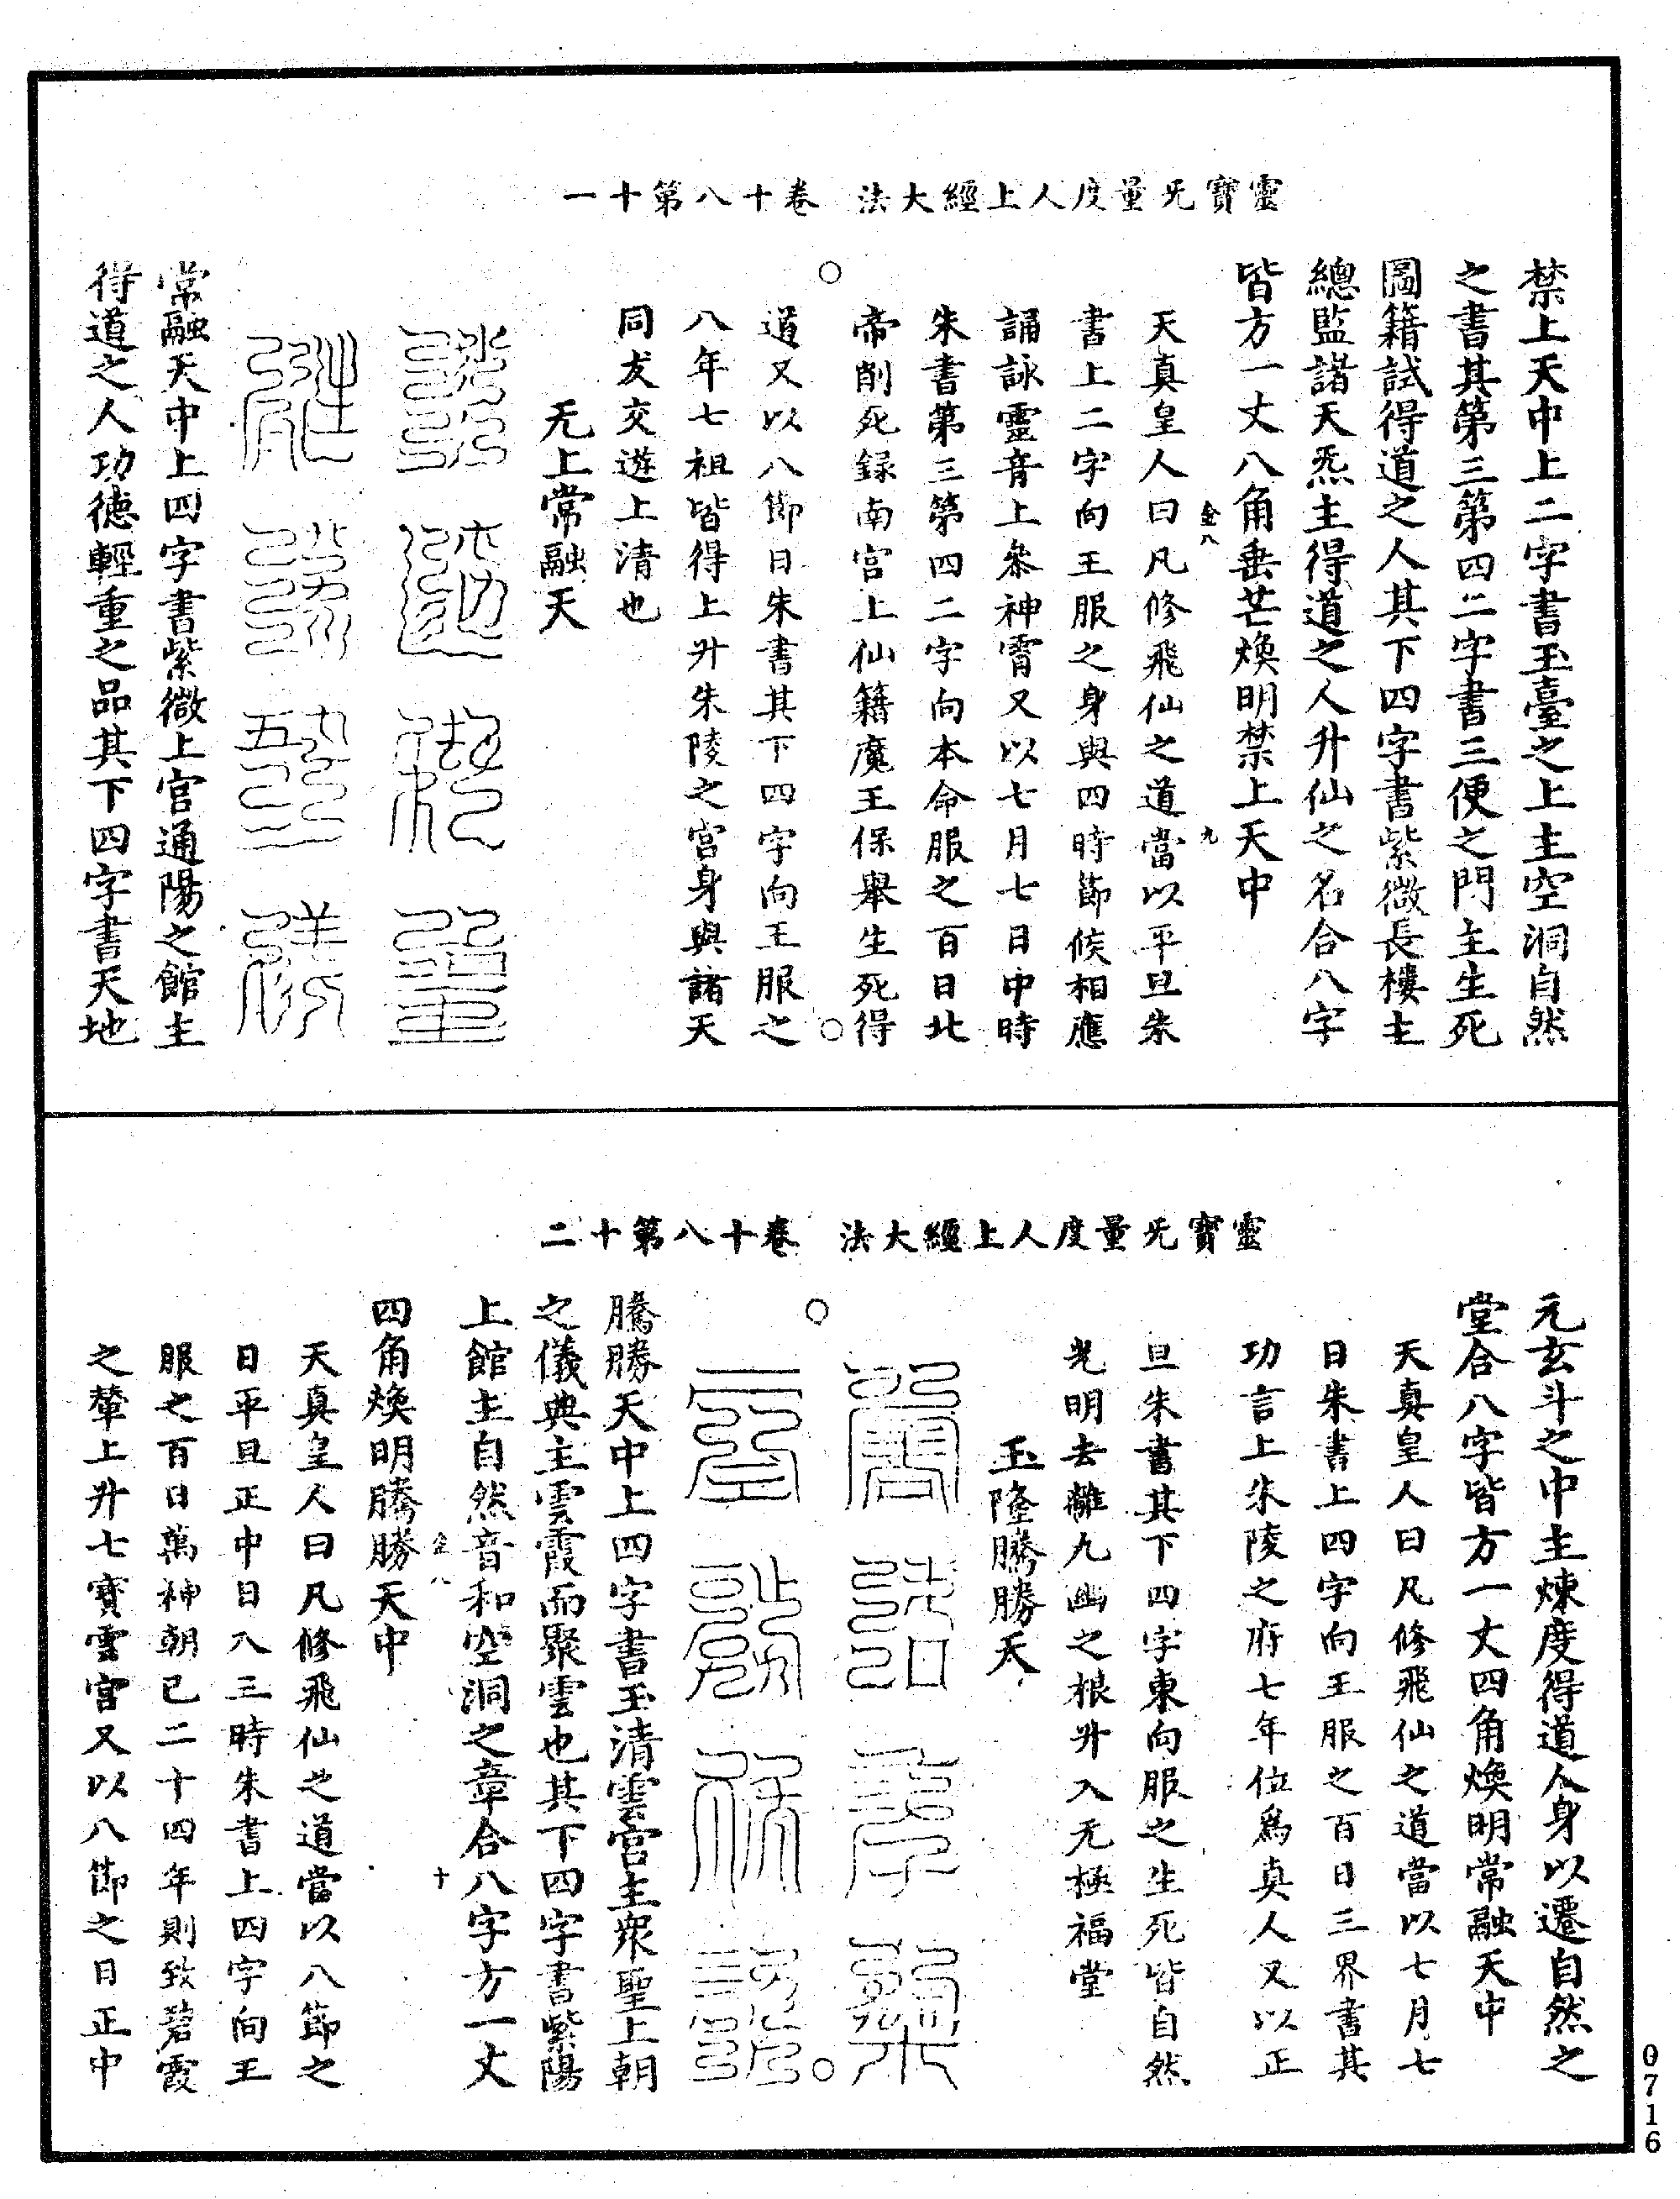 靈寶无量度人上經大法　卷十八第十一
禁上天中上二字書玉臺之上主空洞自然
之書其第三第四二字書三便之門主生死
圖籍試得道之人其下四字書紫微長樓主
總監諸天炁主得道之人升仙之名合八字
皆方一丈八角垂芒煥明禁上天中
金八　九
天真皇人曰凡修飛仙之道當以平旦朱
書上二字向王服之身與四時節候相應
誦詠靈音上參神霄又以七月七日中時
朱書第三第四二字向本命服之百日北
帝削死録南宮上仙籍魔王保舉生死得
道又以八節日朱書其下四字向王服之
八年七祖皆得上升朱陵之宮身與諸天
同友交遊上清也
无上常融天
常融天中上四字書紫微上宮通陽之館主
得道之人功德輕重之品其下四字書天地
靈寶无量度人上經大法　卷十八第十二
元玄斗之中主煉度得道人身以遷自然之
堂合八字皆方一丈四角煥明常融天中
天真皇人曰凡修飛仙之道當以七月七
日朱書上四字向王服之百日三界書其
功言上朱陵之府七年位爲真人又以正
旦朱書其下四字東向服之生死皆自然
光明去離九幽之根升入无極福堂
玉隆騰勝天
騰勝天中上四字書玉清雲宮主衆聖上朝
之儀典主雲霞而聚雲也其下四字書紫陽
上館主自然音和空洞之章合八字方一丈
金八　十
四角煥明騰勝天中
天真皇人曰凡修飛仙之道當以八節之
日平旦正中日入三時朱書上四字向王
服之百日萬神朝己二十四年則致碧霞
之輦上升七寶雲宮又以八節之日正中
0716